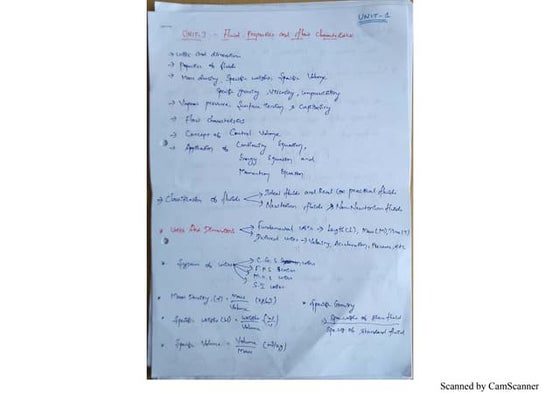 UNIT-1
UNIT-1 :- Fluid Properties and Flow Characteristics
→ Units and dimensions
→ Properties of fluids
→ Mass density, Specific weight, Specific Volume,
Specific gravity, Viscosity, compressibility
→ Vapour pressure, Surface tension & Capillarity
→ Flow characteristics
→ Concept of Control Volume
→ Application of Continuity Equation,
Energy Equation and
Momentum Equation
→ Classification of fluids
→ Ideal fluids and Real (or) practical fluids
→ Newtonian fluids & Non-Newtonian fluids
* Units And Dimensions
→ Fundamental units → Length(L), Mass(M), Time(T)
→ Derived units → Velocity, Acceleration, Pressure, etc
* System of units
→ C.G.S units
→ F.P.S units
→ M.K.S units
→ S.I units
* Mass Density = Mass / Volume (kg/m³)
* Specific Gravity
* Specific Weight = Weight / Volume
= Sp. weight of fluid / Sp. wt of Standard fluid
* Specific Volume = Volume / Mass (m³/kg)
Scanned by CamScanner